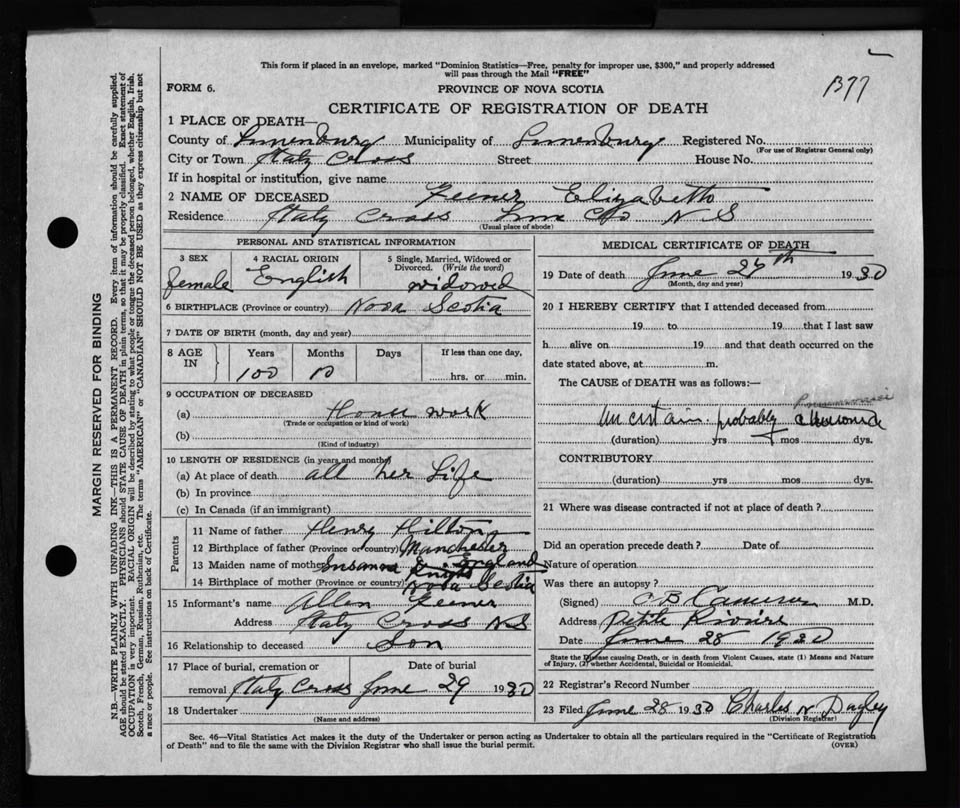 This form if placed in an envelope, marked "Dominion Statistics—Free, penalty for improper use, $300," and properly addressed
will pass through the Mail "FREE"
B77
FORM 6.
PROVINCE OF NOVA SCOTIA
CERTIFICATE OF REGISTRATION OF DEATH
1 PLACE OF DEATH—
County of Lunenburg Municipality of Lunenburg Registered No.
(For use of Registrar General only)
City or Town Italy Cross Street House No.
If in hospital or institution, give name
2 NAME OF DECEASED Feener Elizabeth
Residence Italy Cross Lun Co N S
(Usual place of abode)
PERSONAL AND STATISTICAL INFORMATION
3 SEX 4 RACIAL ORIGIN 5 Single, Married, Widowed or
Divorced. (Write the word)
female English widowed
6 BIRTHPLACE (Province or country) Nova Scotia
7 DATE OF BIRTH (month, day and year)
8 AGE IN Years Months Days If less than one day,
100 10 hrs. or min.
9 OCCUPATION OF DECEASED
(a) House work
(Trade or occupation or kind of work)
(b)
(Kind of industry)
10 LENGTH OF RESIDENCE (in years and months)
(a) At place of death all her Life
(b) In province
(c) In Canada (if an immigrant)
Parents
11 Name of father Henry Hilton
12 Birthplace of father (Province or country) Manchester
England
13 Maiden name of mother Susanna
14 Birthplace of mother (Province or country) Nova Scotia
15 Informant's name Allen Feener
Address Italy Cross N S
16 Relationship to deceased Son
17 Place of burial, cremation or Date of burial
removal Italy Cross June 29 1930
18 Undertaker
(Name and address)
MEDICAL CERTIFICATE OF DEATH
19 Date of death June 27th 1930
(Month, day and year)
20 I HEREBY CERTIFY that I attended deceased from
19 to 19 that I last saw
h alive on 19 and that death occurred on the
date stated above, at m.
The CAUSE of DEATH was as follows:—
uncertain. probably pneumonia
(duration) yrs mos dys.
CONTRIBUTORY
(duration) yrs mos dys.
21 Where was disease contracted if not at place of death?
Did an operation precede death? Date of
Nature of operation
Was there an autopsy?
(Signed) C B Cameron M.D.
Address Petite Riviere
Date June 28 1930
State the Disease causing Death, or in death from Violent Causes, state (1) Means and Nature
of Injury, (2) whether Accidental, Suicidal or Homicidal.
22 Registrar's Record Number
23 Filed June 28 1930 Charles N Dagley
(Division Registrar)
Sec. 46—Vital Statistics Act makes it the duty of the Undertaker or person acting as Undertaker to obtain all the particulars required in the "Certificate of Registration
of Death" and to file the same with the Division Registrar who shall issue the burial permit.
(OVER)
MARGIN RESERVED FOR BINDING
N.B.—WRITE PLAINLY WITH UNFADING INK—THIS IS A PERMANENT RECORD. Every item of information should be carefully supplied.
AGE should be stated EXACTLY. PHYSICIANS should STATE CAUSE OF DEATH in plain terms, so that it may be properly classified. Exact statement of
OCCUPATION is very important. RACIAL ORIGIN will be described by stating to what people or tongue the deceased person belonged, whether English, Irish,
Scotch, French, German, Russian, Ruthenian, etc. The terms "AMERICAN" or "CANADIAN" SHOULD NOT BE USED as they express citizenship but not
a race or people. See instructions on back of Certificate.